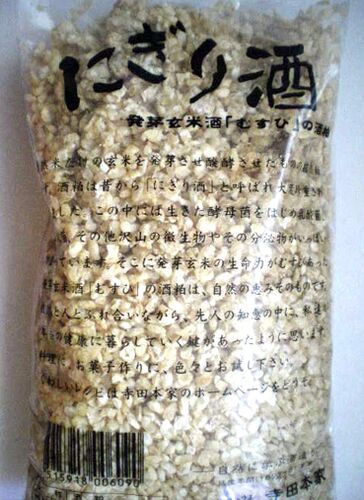 にぎり酒
発芽玄米酒「むすひ」の酒粕
米だけの玄米を発芽させ醗酵させたものの
す。酒粕は昔から「にぎり酒」と呼ばれ大
ました。この中には生きた酵母菌をはじめ乳酸菌、
その他沢山の微生物やその分泌物がいっぱい
ています。そこに発芽玄米の生命力がむすびあった
芽玄米酒「むすひ」の酒粕は、自然の恵みそのものです。
人とふれ合いながら、先人の知恵の中に、私達
の健康に暮らしていく鍵があったように思います
料理に、お菓子作りに、色々とお試し下さい。
しいレシピは寺田本家のホームページをどうぞ。
515918 006090
自然に学ぶ酒造り
寺田本家